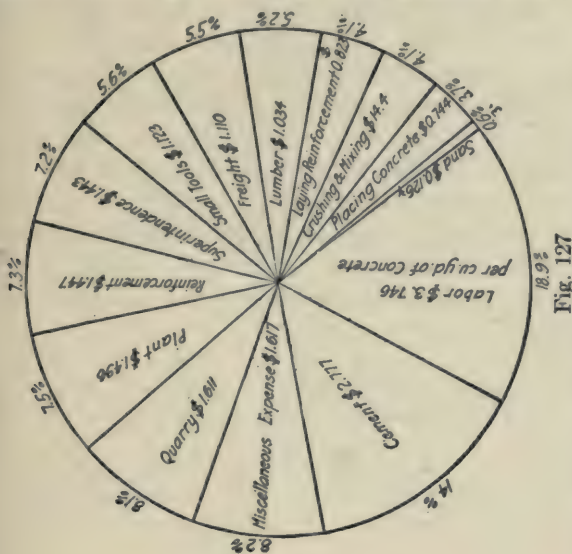 18.9%
Labor $3.746
per cu.yd. of Concrete
14%
Cement $2.777
8.2%
Miscellaneous Expense $1.617
8.1%
Quarry $1.611
7.5%
Plant $1.496
7.3%
Reinforcement $1.447
7.2%
Superintendence $1.443
5.6%
Small Tools $1.123
5.5%
Freight $1.110
5.2%
Lumber $1.034
4.1%
Laying Reinforcement 0.823
$
4.1%
Crushing & Mixing $14.4
3.7%
Placing Concrete $0.744
0.6%
Sand $0.125
Fig. 127